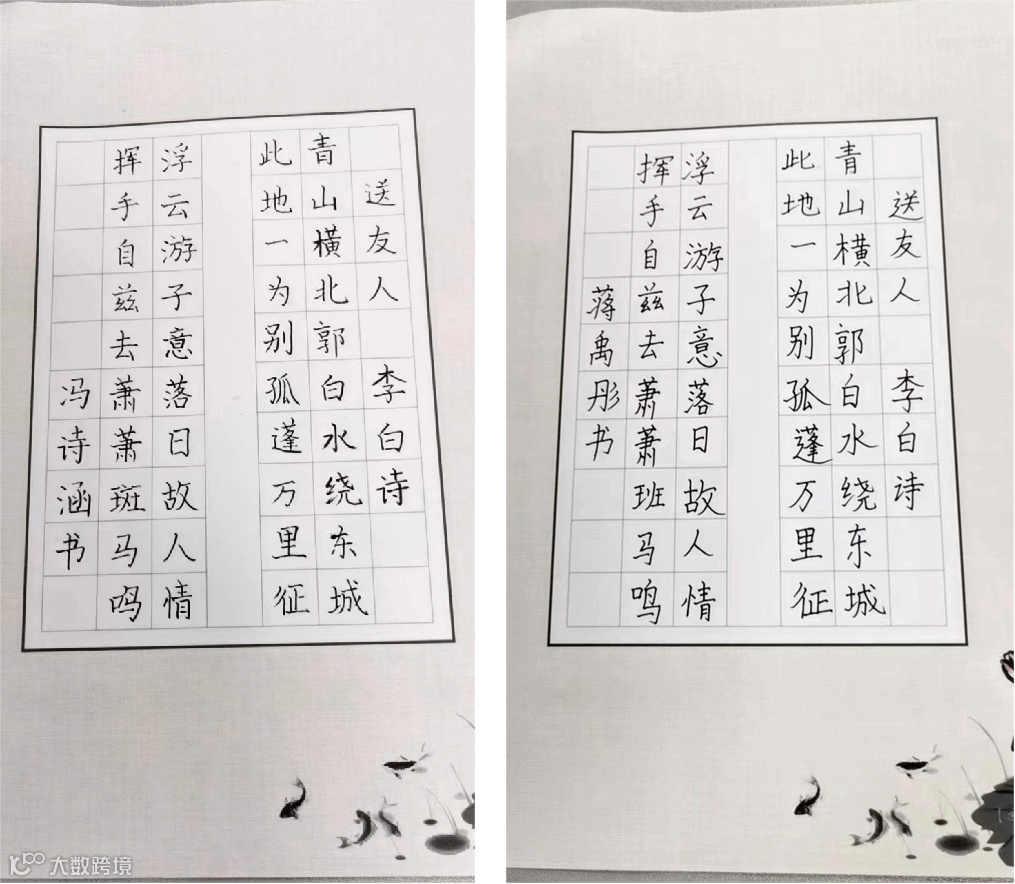 送友人 李白诗
青山横北郭白水绕东城
此地一为别孤蓬万里征
浮云游子意落日故人情
挥手自兹去萧萧斑马鸣
冯诗涵书
送友人 李白诗
青山横北郭白水绕东城
此地一为别孤蓬万里征
浮云游子意落日故人情
挥手自兹去萧萧班马鸣
蒋禹彤书
大数跨境